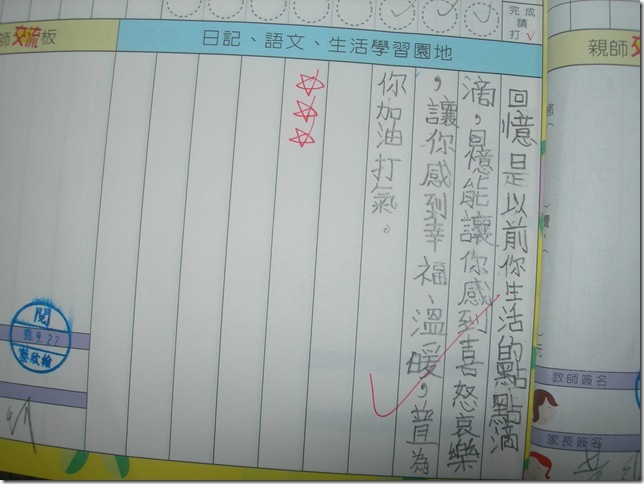 完成
請
打✓
師交流板
日記、語文、生活學習園地
親師
回憶是以前你生活的點點滴
滴，憶能讓你感到喜怒哀樂
，讓你感到幸福、溫暖，為
你加油打氣。
閱
教師簽名
家長簽名